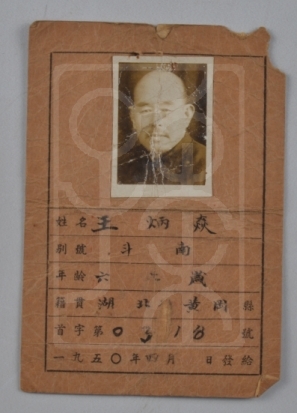 姓名 王炳焱
別號 斗南
年齡 六 歲
籍貫 湖北 黃岡縣
首字第0318號
一九五〇年四月 日發給